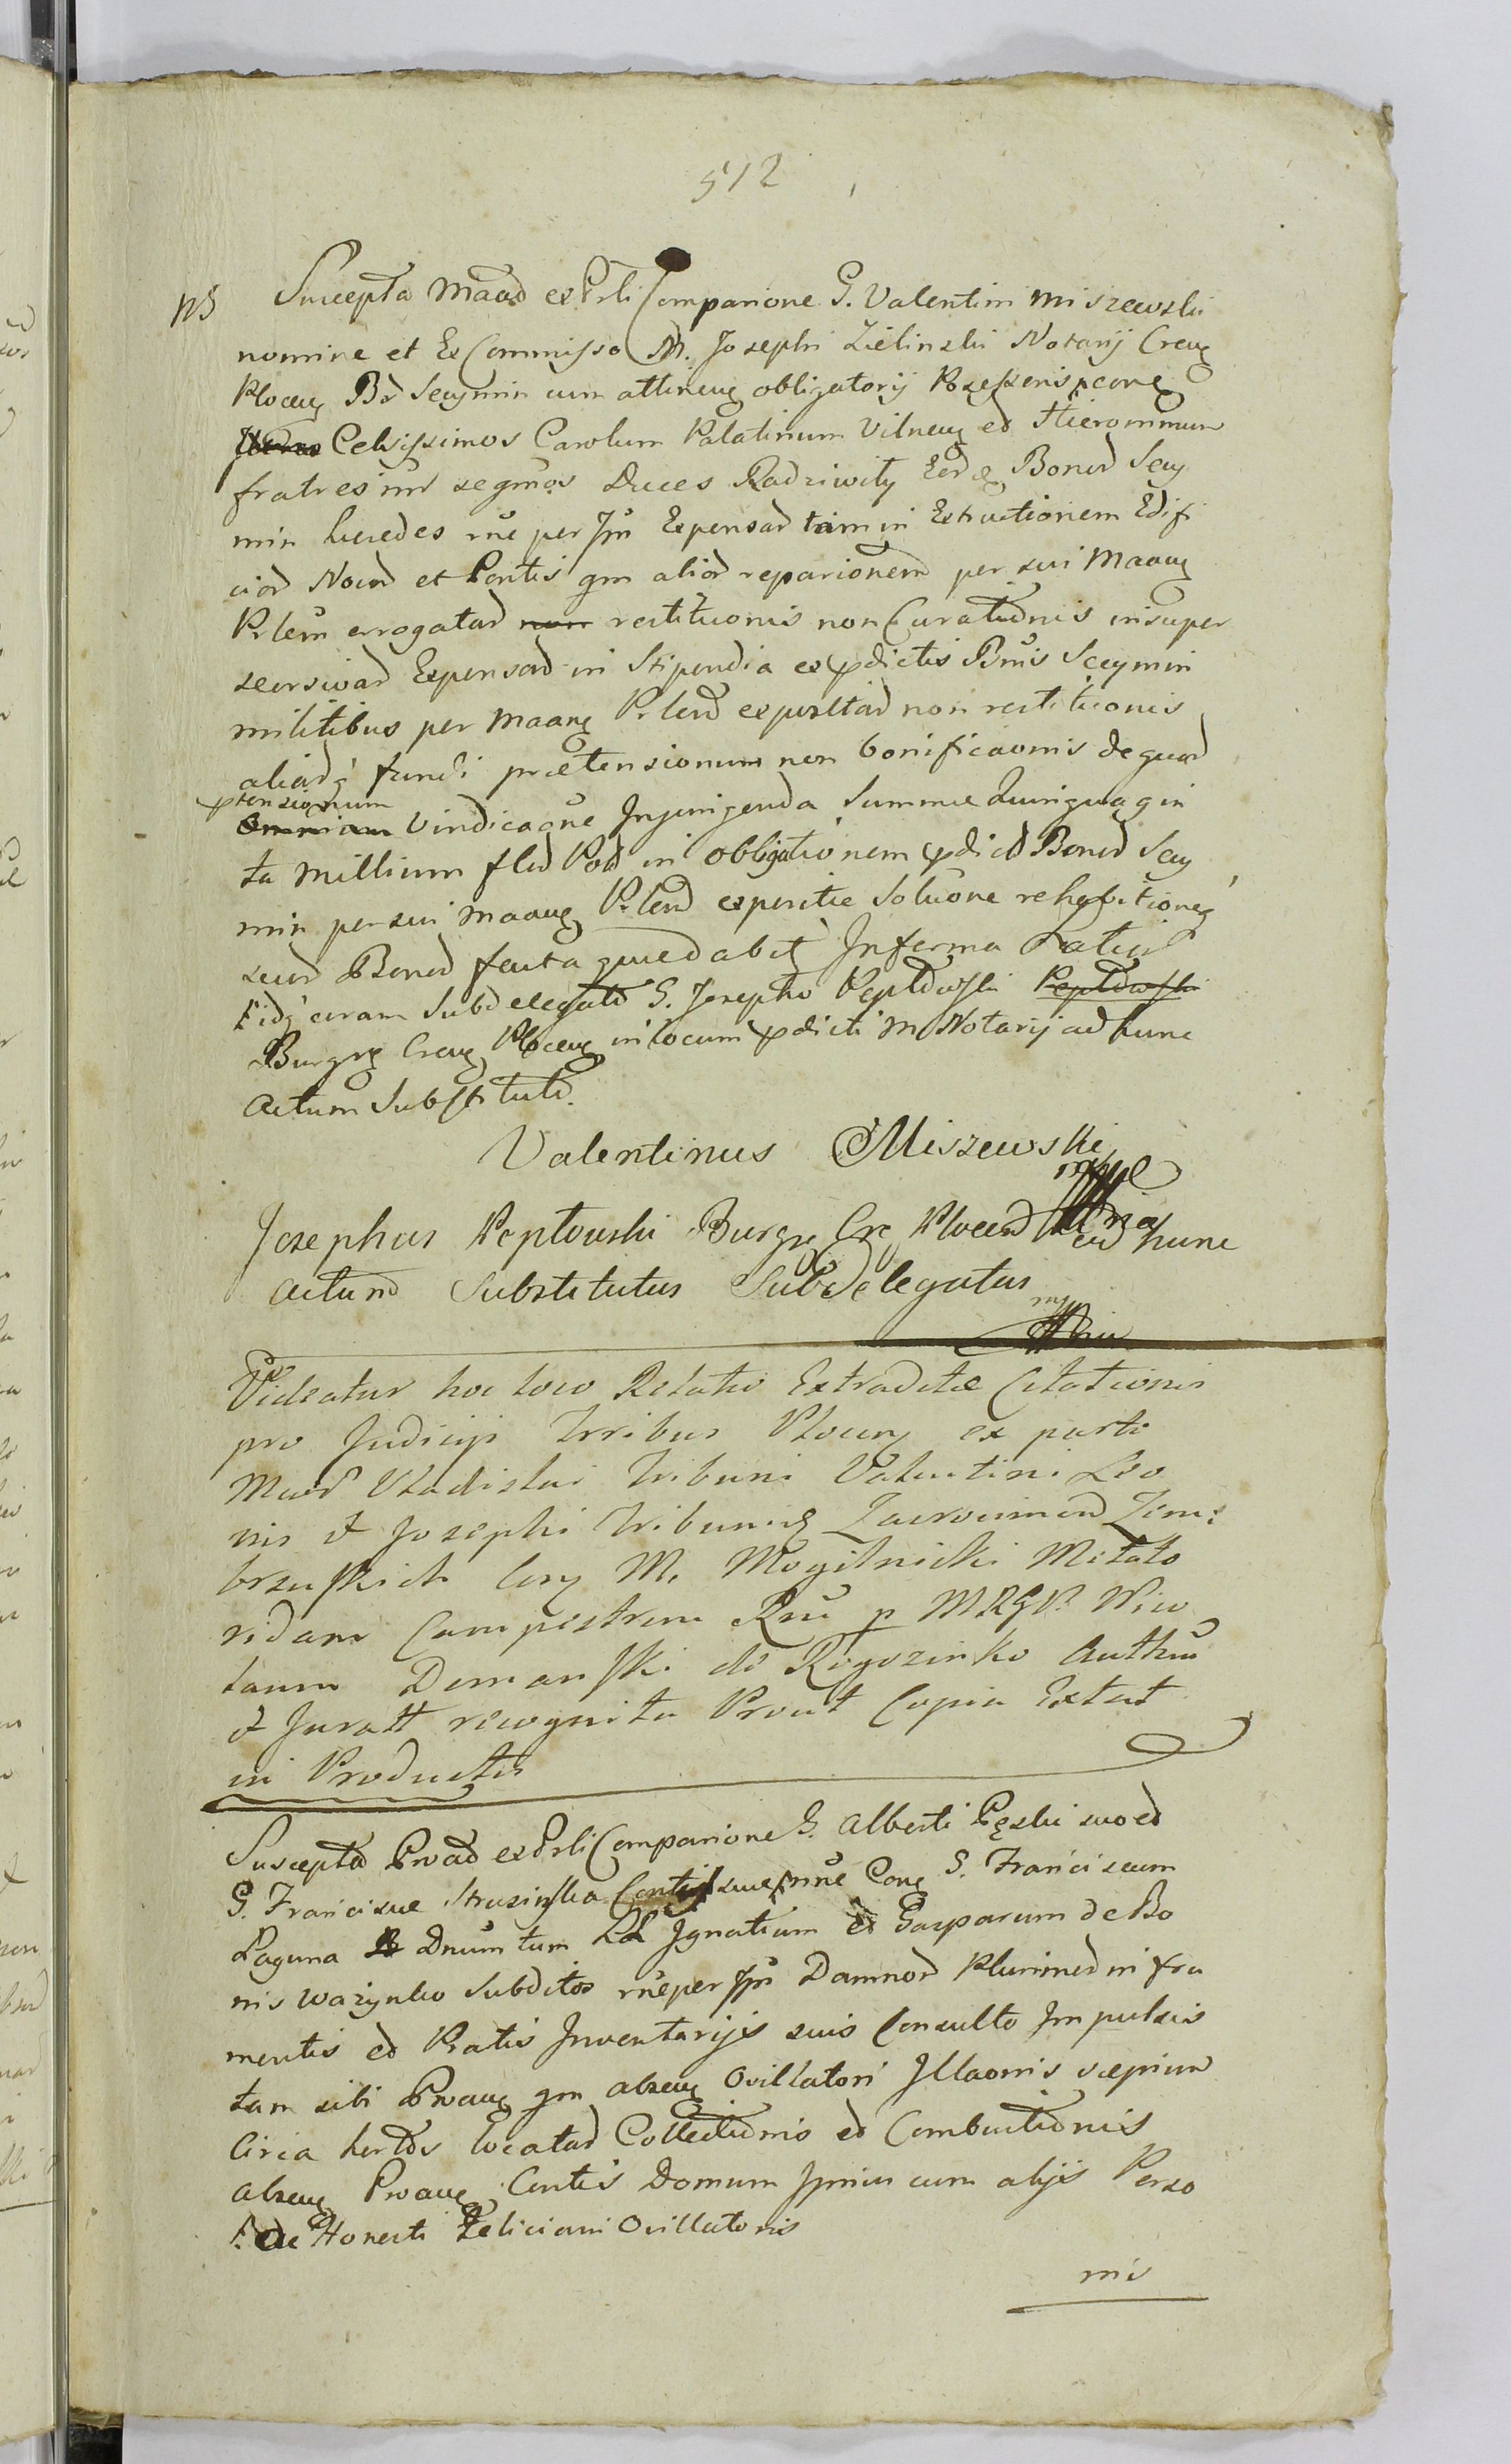 512
NB Suscepta Maad ex Prli Comparione G. Valentini Miszewski
nomine et Ex Commisso M. Josephi Zielinski Notarij Creng
Ploceng Bd Seymin cum attineng obligatorij Possessoris pcong
Celsissimos Carolum Palatinum Vilneng ed Hieronimum
fratres inr se gmos Duces Radziwiły Eord Bonord Sey
min heredes rne per Jm Expensard tam in Extructionem Edifi
ciord Novord et Pontis qm aliord reparionem per sui Maang
Prlem errogatard non restituonis non Curationis insuper
seorsivard Expensard in Stipendia ex pdictis Bnis Seymin
militibus per Maang Prlend expositard non restituonis
aliardq fundi prætensionum non bonificaonis de quard
ptensionum
Omnium Vindicaone Injungenda Summæ Quinquagin
ta Millium flord Pold in obligationem pdictd Bonord Sey
min per sui Maang Prlend expositæ Soluone rehabitioneq
eord Bonord feuta quedabit In forma
Fidq curam Subdelegato G. Josepho Peptowski Peptowski
Burgrg Creng Ploceng in locum pdicti M Notarij ad hunc
Actum Substituto.
Valentinus Miszewski
mp
Josephus Peptowski Burgrg Crg Plocend ad hunc
Actum Substitutus Subdelegatus
mp
Videatur hoc loco Relatio Extraditæ Citationis
pro Judicijs Trribus Ploceng ex parte
Mard Vladislai Tribuni Valentini Leo
nis et Josephi Tribunid Zacrocimend Zem:
brzuskich Cong M. Mogilnicki Metato
ridam Campestrem Rne p MRGP. Wiw
tanm Domanski de Rogozinko Authm
et Juratt recognita Prout Copia Extat
in Productis
Suscepta Proad ex Prli Comparione G. Alberti Pęski suo ed
G. Franciscæ Strusinska Contis suæ nne Cong G. Franciscum
Laguna Dnum tum LL Ignatium ed Gasparum de Bo
nis Warynko Subditos rne per Jm Damnord Plurimord in fru
mentis ed Pratis Inventarijs suis Consulto Impulsis
tam sibi Proang qm abseng Ovillatori Illaonis sæpium
Circa hortos locatard Collectionis ed Combustionis
abseng Proang Contis Domum Jpsius cum alijs Perso
F. de Honesti Feliciani Ovillatoris
nis